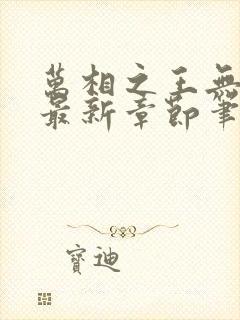 萬相之王無
最新章節筆
寶迪